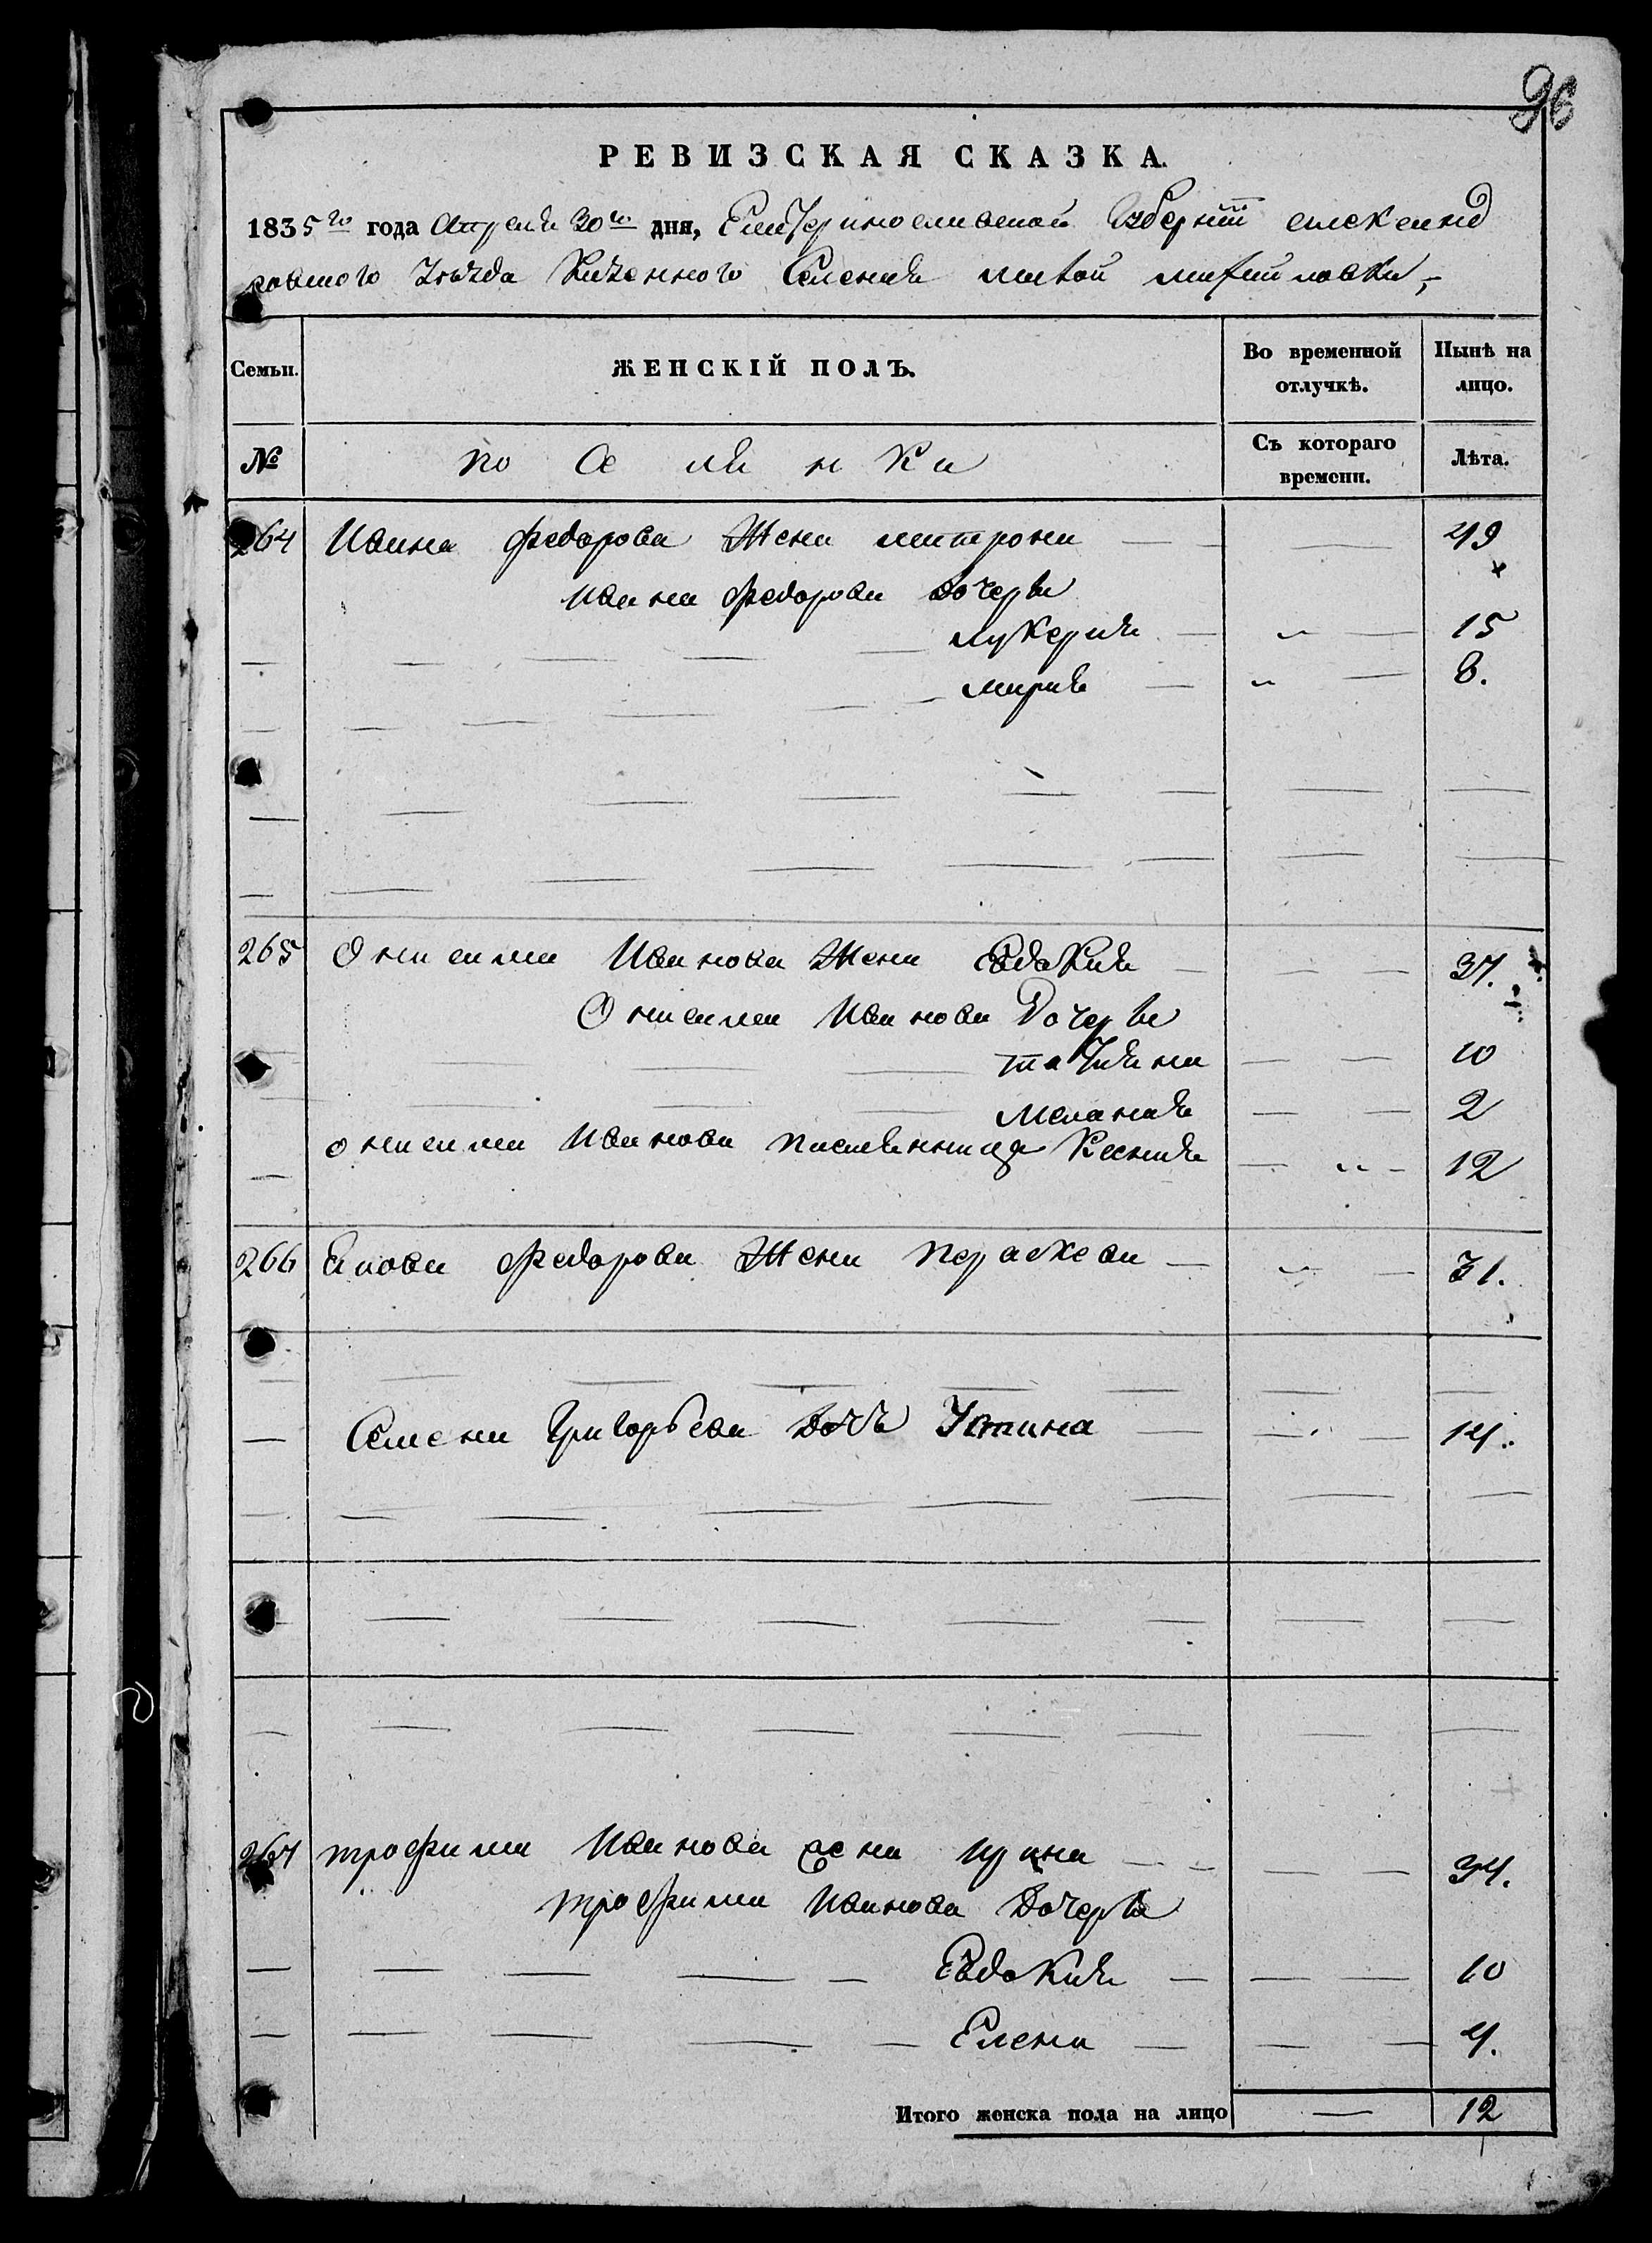 96
РЕВИЗСКАЯ СКАЗКА.
1835го года Апреля 30го дня, Екатеринославской Губернии Александ
ровского уезда Казенного Селения малой михайловки,
Семьи. ЖЕНСКІЙ ПОЛЪ. Во временной отлучкѣ. Нынѣ на лицо.
№ поселянки Съ котораго времени. Лѣта.
264 Ивана Федорова Жена матрона 49
Ивана Федорова дочерьи
лукерия 15
мария 8.
265 Онисима Иванова Жена Евдокия 37.
Онисима Иванова дочерьи
татияна 10
Мелания 2
онисима Иванова племянница Ксения 12
266 Якова Федорова Жена Параскева 31.
Семена Григорьева дочь Устина 14.
267 трофима Иванова жена ирина 34.
трофима Иванова дочерьи
Евдокия 10
Елена 4.
Итого женска пола на лицо — 12